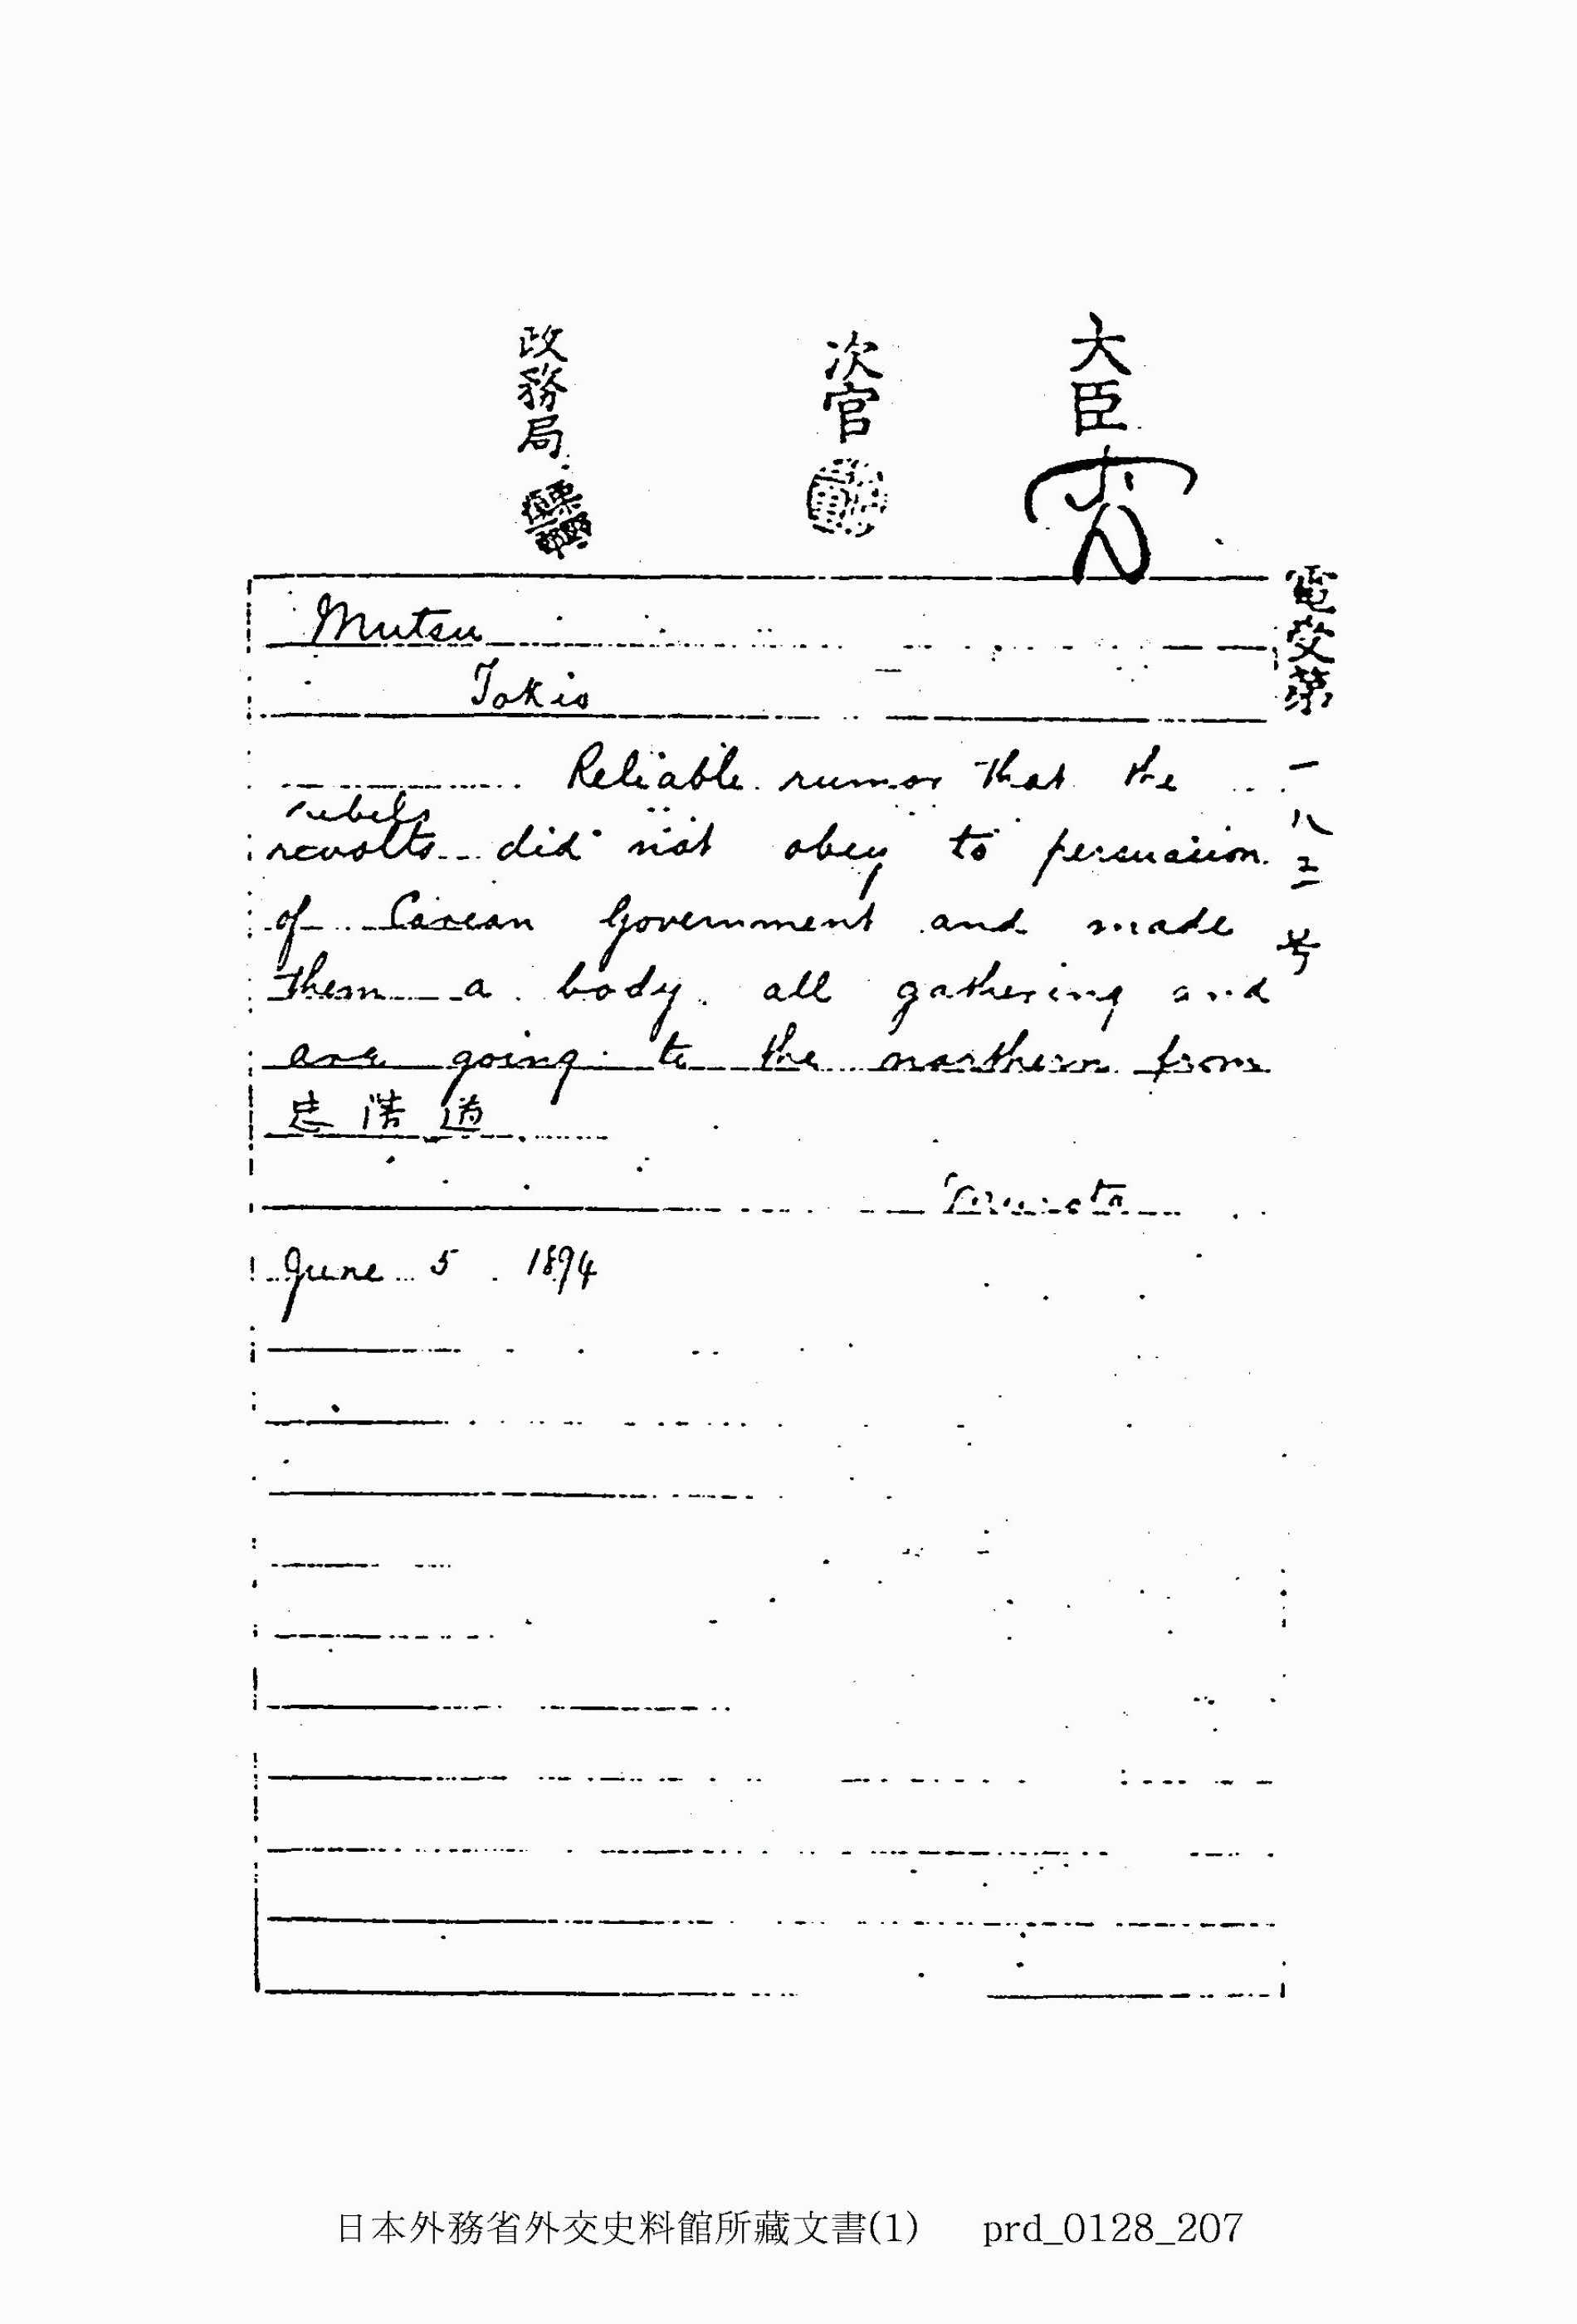 大臣
次官
政務局
電受第一八三号
Mutsu
Tokio
Reliable rumor that the
rebels
revolts did not obey to persuasion
of Corean Government and made
them a body all gathering and
are going to the northern from
忠清道
June 5 1894
日本外務省外交史料館所藏文書(1) prd_0128_207